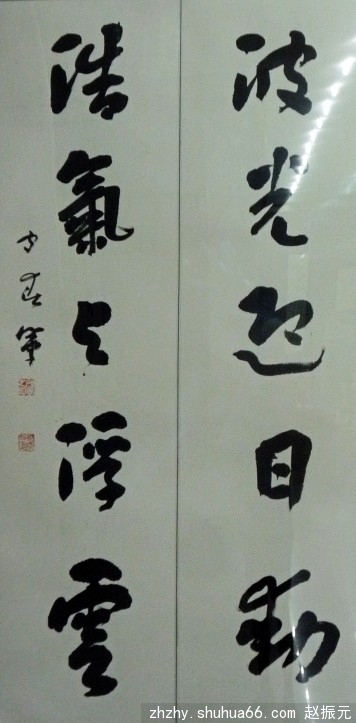 波光迎日動
浩氣与浮雲
zhzhy.shuhua66.com 赵振元